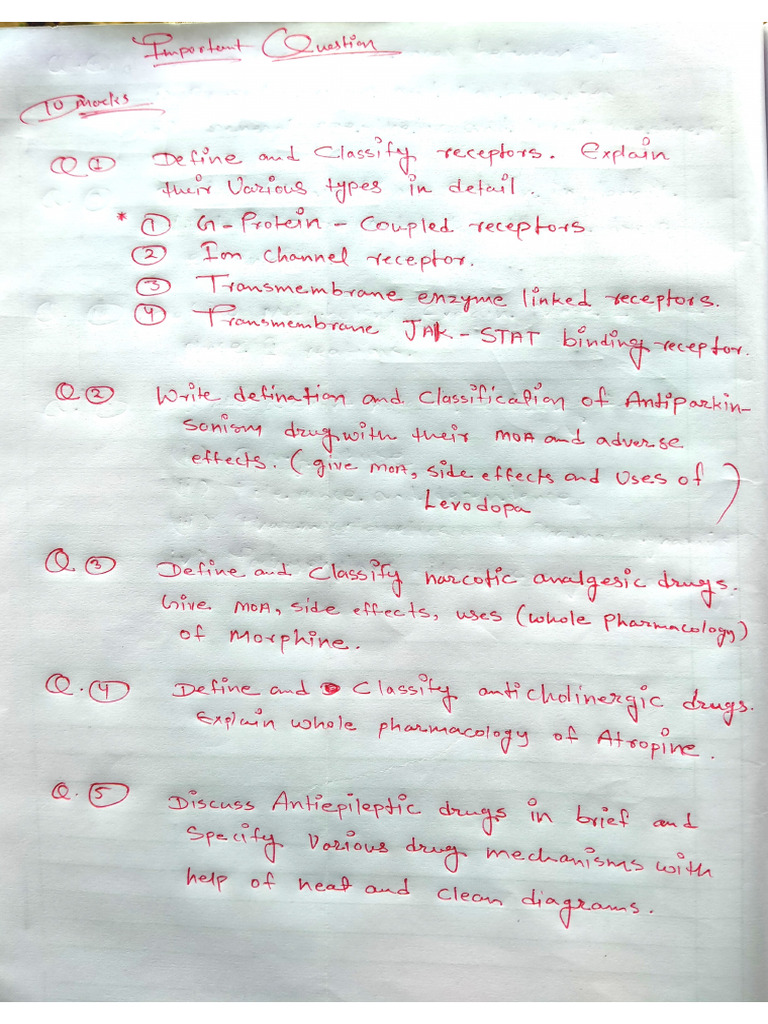 Important Question
10 Marks
Q ① Define and Classify receptors. Explain
their Various types in detail.
* ① G-Protein-Coupled receptors.
② Ion channel receptor.
③ Transmembrane enzyme linked receptors.
④ Transmembrane JAK-STAT binding receptor.
Q ② Write defination and Classification of Antiparkin-
sonism drug with their MOA and adverse
effects. (give MOA, side effects and Uses of
Levodopa )
Q ③ Define and Classify narcotic analgesic drugs.
Give MOA, side effects, uses (whole pharmacology)
of Morphine.
Q. ④ Define and Classify anticholinergic drugs.
Explain whole pharmacology of Atropine.
Q. ⑤ Discuss Antiepileptic drugs in brief and
Specify Various drug mechanisms with
help of neat and clean diagrams.